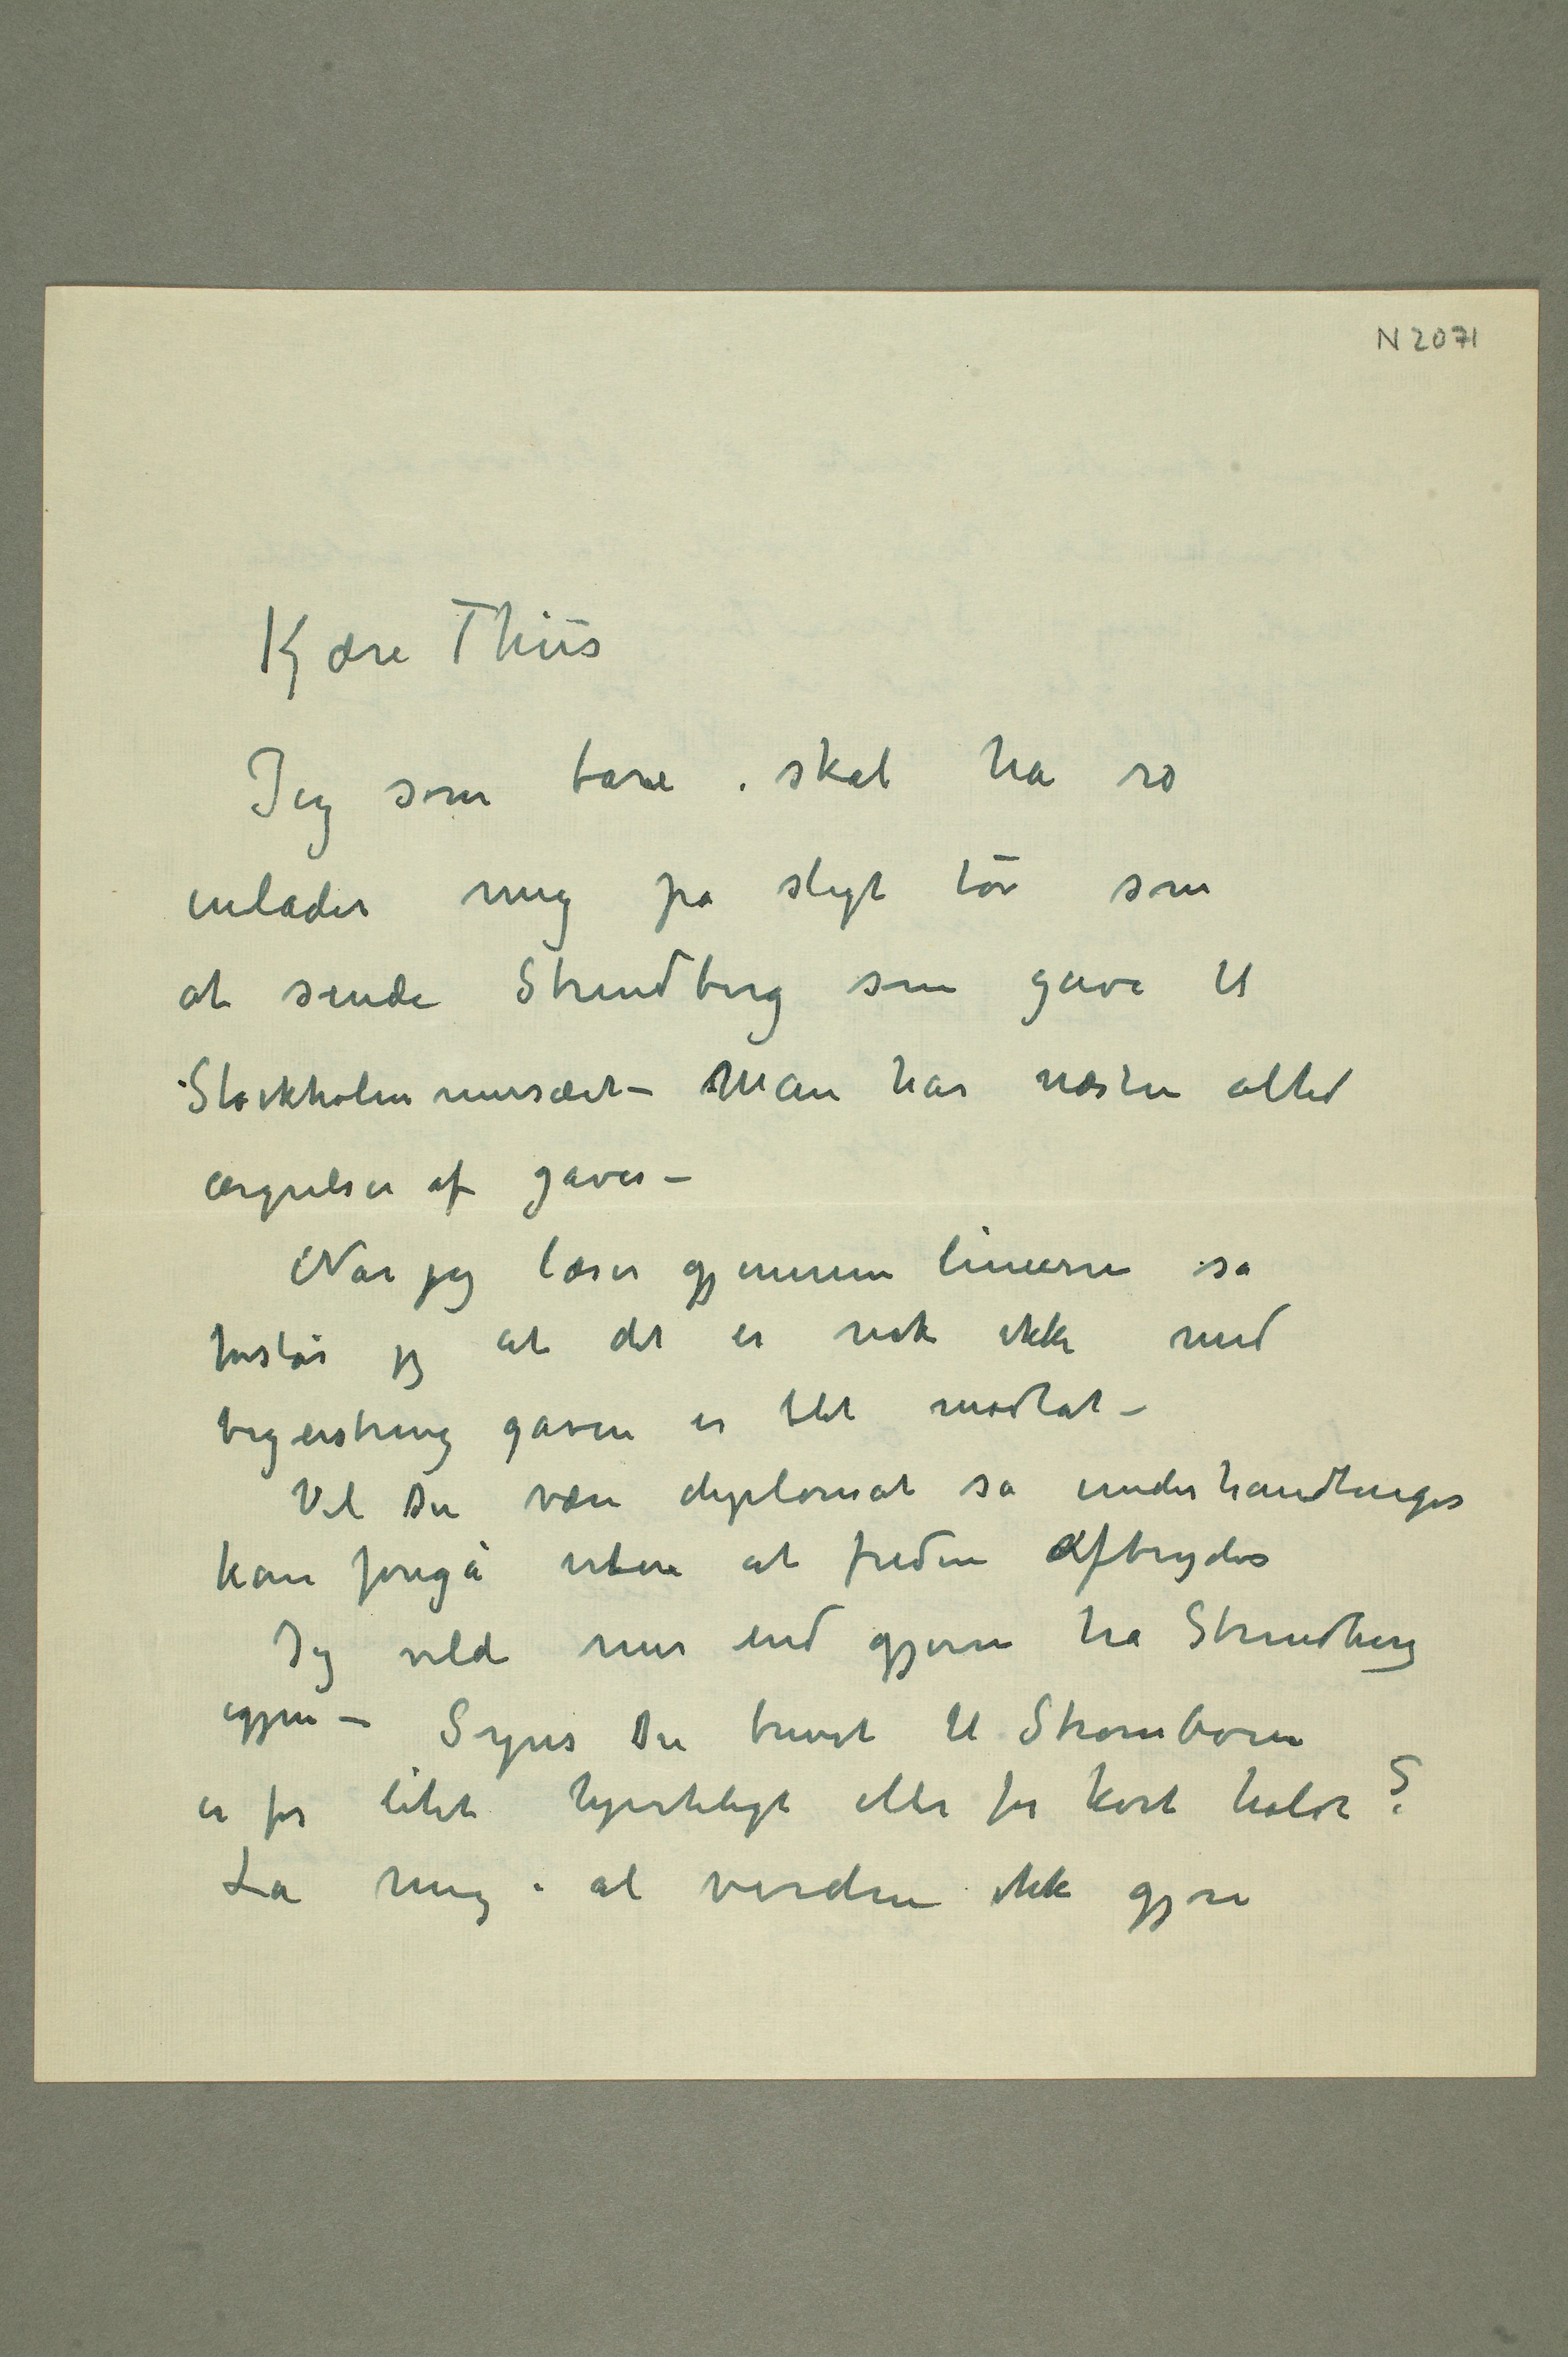 N 2071
Kjære Thiis
Jeg som bare skal ha ro
inlader mig på sligt tøv som
at sende Strindberg som gave til
Stockholmmuseet – Man har næsten altid
ærgrelser af gaver –
Når jeg læser gjennem linierne så
forstår jeg at det er nok ikke med
begeistring gaven er blet modtat –
Vil Du være diplomat så underhandlinger
kan foregå uten at freden afbrydes
Jeg vilde mer end gjerne ha Strindberg
igjen – Synes Du brevet til Strømbom
er for litet hjerteligt eller for kort holdt?
La mig i al verden ikke gjøre